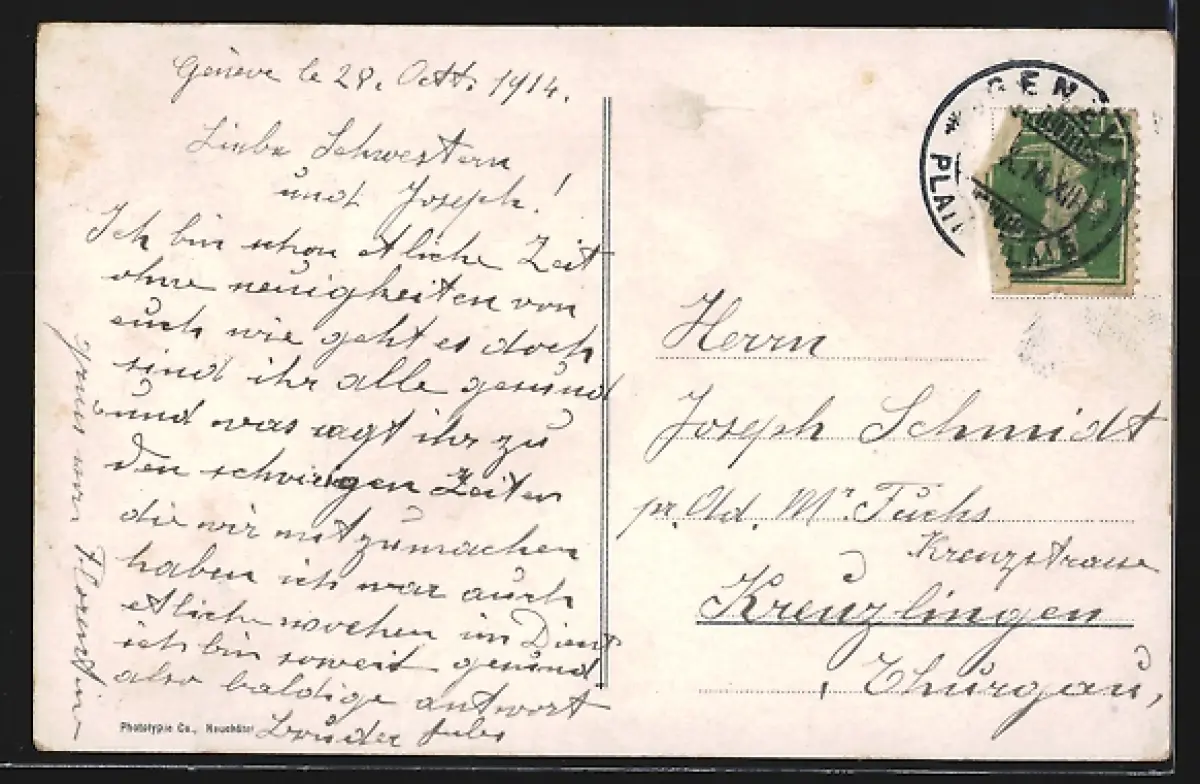 Genève le 28. Octt. 1914.
Liebe Schwestern
und Joseph!
Ich bin schon etliche Zeit
ohne neuigkeiten von
euch wie geht es doch
sind ihr alle gesund
und was sagt ihr zu
den schwirigen Zeiten
die wir mitzumachen
haben ich war auch
etliche wochen im Dienst
ich bin soweit gesund
also baldige antwort
Bruder Jules
Gruss von Florentine
Phototypie Co., Neuchâtel
PLAIN
Herrn
Joseph Schmidt
pr. Ad. Mr. Fuchs
Kreuzstrasse
Kreuzlingen
Thurgau,